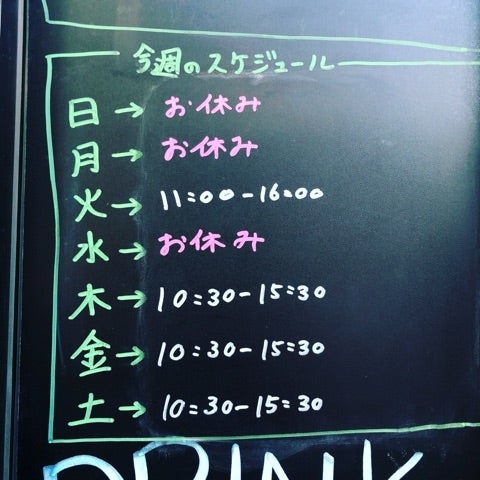 今週のスケジュール
日→お休み
月→お休み
火→11:00-16:00
水→お休み
木→10:30-15:30
金→10:30-15:30
土→10:30-15:30
DRINK